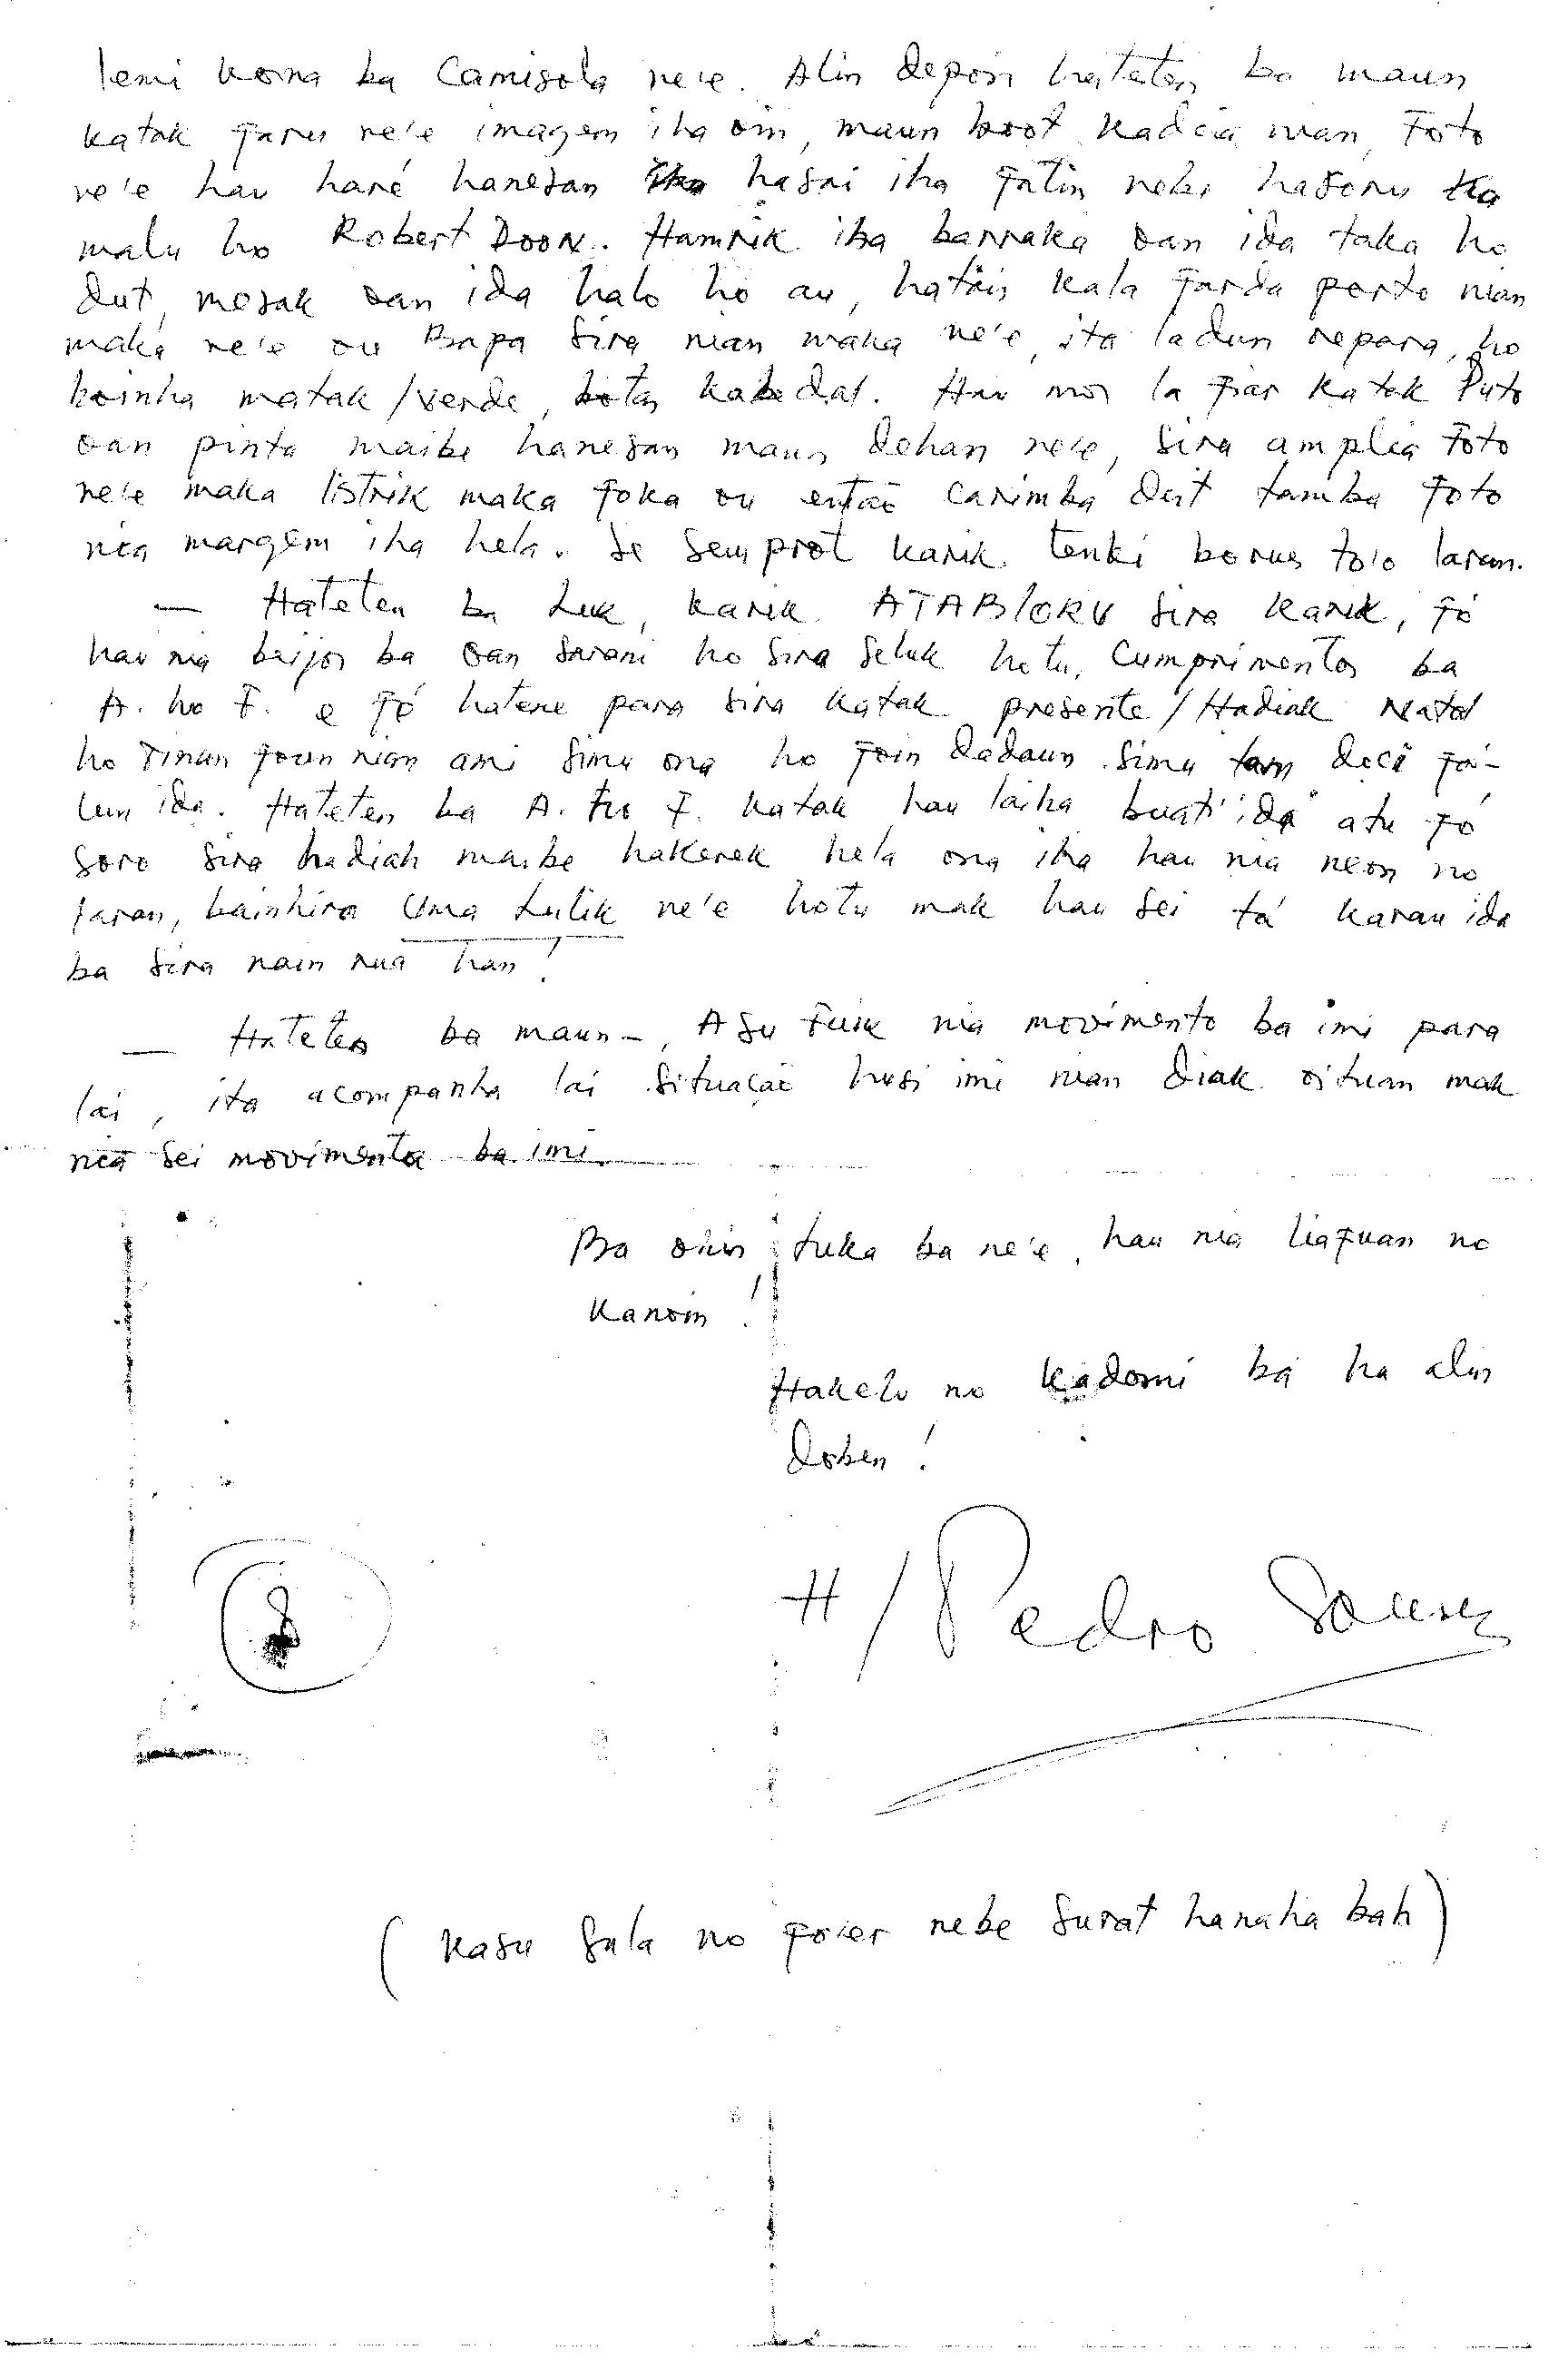 lemi kona ba Camisola ne'e. Alin depois hateten ba maun
katak faru ne'e imagem iha oin, maun boot kadeia nian, Foto
ne'e hau haré hanesan hasai iha fatin nebe hasoru
malu ho Robert DOOK. Hamrik iha barraka oan ida taka ho
dut, mesak oan ida halo ho au, hatais kala farda perto nian
maka ne'e ou Bapa sira nian maka ne'e, ita ladun repara, ho
boinha matak/verde, botas kabedal. Hau mos la fiar katak Puto
oan pinta maibe hanesan maun dehan ne'e, sira amplia Foto
ne'e maka listrik maka foka ou entaõ carimba deit tamba Foto
nia margem iha hela. Se semprot karik tenki borus to'o laran.
— Hateten ba Luk, karik ATAB/ORV sira karik, fó
hau nia beijos ba oan sarani ho sira seluk hotu, Cumprimentos ba
A. ho F. e fó hatene para sira katak presente/Hadiak Natal
ho Tinan foun nian ami simu ona ho foin dadaun simu tan deci fó-
lun ida. Hateten ba A. ho F. katak hau laiha buat ida atu fó
soro sira hadiak maibe hakerek hela ona iha hau nia neon no
laran, bainhira Uma Lulik ne'e hotu mak hau sei tá karau ida
ba sira nain rua han!
— Hateten ba maun –, Asu Fuik nia movimento ba imi para
lai, ita acompanha lai situaçaõ husi imi nian diak oituan mak
nia sei movimenta ba imi.
Ba ohin tuka ba ne'e, hau nia liafuan no
kanoin!
Hakelu no kadomi ba ha alin
doben!
H/Pedro Sousa
(Kasu sala no fo'er nebe surat hanaha bah)